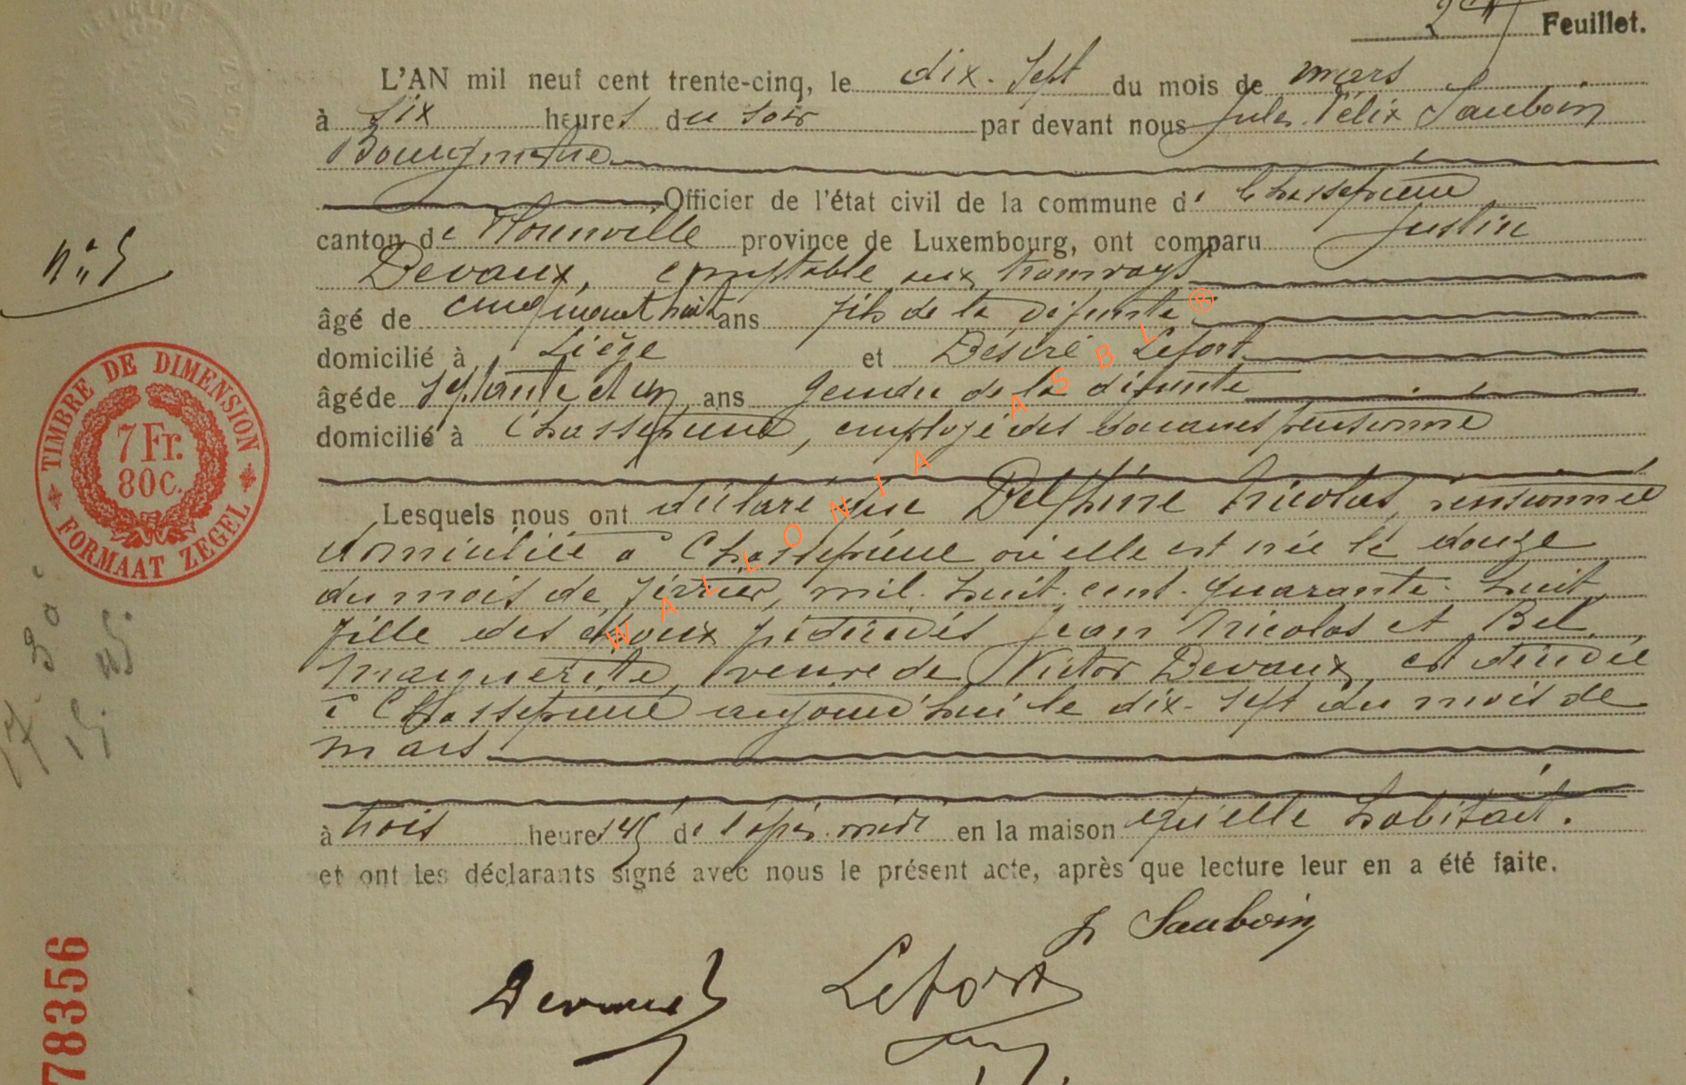 2e Feuillet.
L'AN mil neuf cent trente-cinq, le dix-sept du mois de mars
à six heures du soir par devant nous Jules Félix Sauboin
Bourgmestre
Officier de l'état civil de la commune de Chassepierre
canton de Florenville province de Luxembourg, ont comparu Justin
n° 5
Devaux, comptable aux tramways
âgé de cinquante huit ans fils de la défunte
domicilié à Liège et Désiré Lefort
âgé de septante et un ans gendre de la défunte
domicilié à Chassepierre, employé des douanes pensionné
TIMBRE DE DIMENSION
7 Fr.
80 C.
FORMAAT ZEGEL
Lesquels nous ont déclaré que Delphine Nicolas, pensionnée
domiciliée à Chassepierre où elle est née le douze
du mois de février, mil-huit-cent-quarante-huit,
fille des époux prédécédés Jean Nicolas et Bel
Marguerite, veuve de Victor Devaux, est décédée
à Chassepierre aujourd'hui le dix-sept du mois de
mars
à trois heures 45 de l'après-midi en la maison qu'elle habitait.
et ont les déclarants signé avec nous le présent acte, après que lecture leur en a été faite.
J Sauboin
Devaux Lefort
78356
WALLONIA ASBL ®